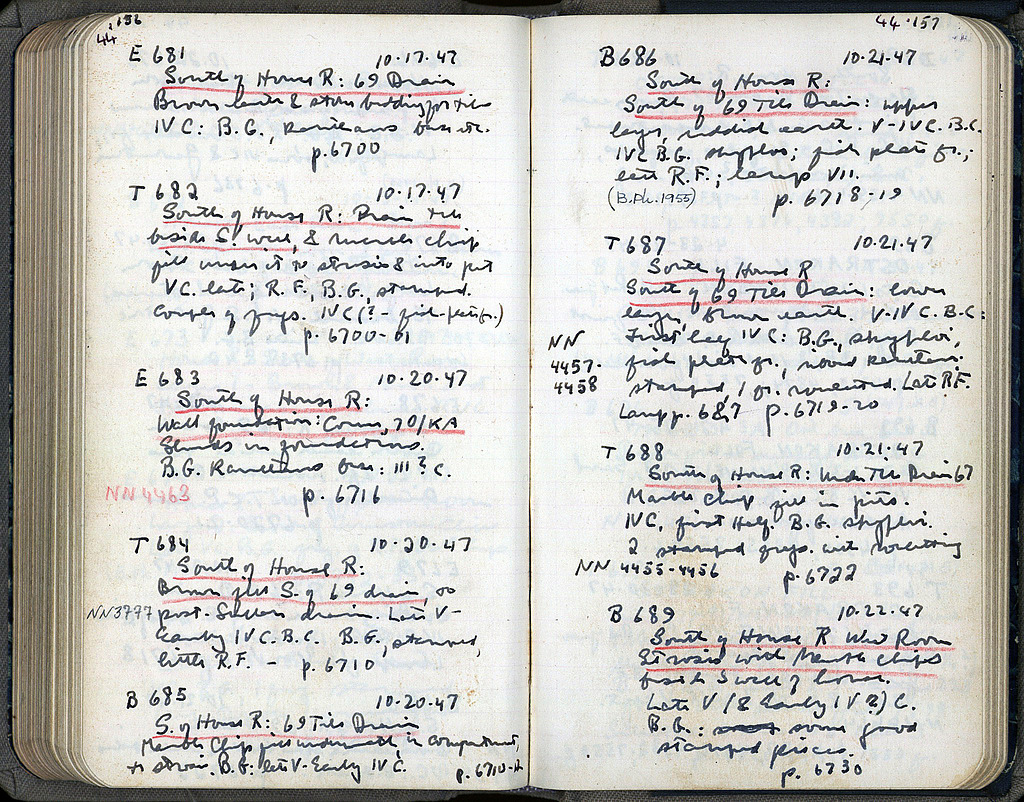 44.156
E 681 10.17.47
South of House R: 69 Drain
Brown earth & stone bedding for tile
IV C: B.G. kantharos base etc.
p. 6700
T 682 10.17.47
South of House R: Drain tile
beside S. wall, & marble chip
fill under it to strosis & into pit
V C. late; R.F., B.G., stamped.
Couple of frags. IV C (? - fish-plate fr.)
p. 6700-01
E 683 10.20.47
South of House R:
Wall foundation: Corner, 70/KA
Sherds in foundations.
B.G. Kantharos base: III? C.
NN 4463 p. 6716
T 684 10.20.47
South of House R:
Brown fill S. of 69 drain, so
NN3797 post-Sullan drain. Late V-
Early IV C. B.C. B.G., stamped,
little R.F. - p. 6710
B 685 10.20.47
S. of House R: 69 Tile Drain
Marble Chip fill underneath, in compartment,
to strosis. B.G. late V-Early IV C. p. 6710-12
44.157
B 686 10.21.47
South of House R:
South of 69 Tile Drain: upper
layer, reddish earth. V-IV C. B.C.
IV C B.G. skyphos; fish plate fr.;
late R.F.; lamp VII.
(B.Ph. 1955) p. 6718-19
T 687 10.21.47
South of House R
South of 69 Tile Drain: lower
layer, brown earth. V-IV C. B.C:
First half IV C: B.G., skyphoi,
fish plate fr., kantharoi
stamped, 1 fr. rouletted. Late R.F.
NN
4457-
4458
Lamp p. 687 p. 6719-20
T 688 10.21.47
South of House R: Under Tile Drain 67
Marble Chip fill in pits.
IV C, first Half. B.G. skyphoi.
2 stamped frags. with rouletting
NN 4455-4456 p. 6722
B 689 10.22.47
South of House R West Room
Strosis with Marble chips
beside S wall of house.
Late V (& Early IV?) C.
B.G.: some good
stamped pieces.
p. 6730